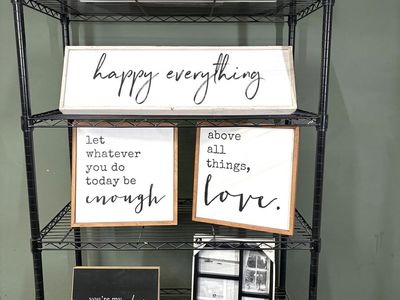 happy everything
let
whatever
you do
today be
enough
above
all
things,
love.
you're my